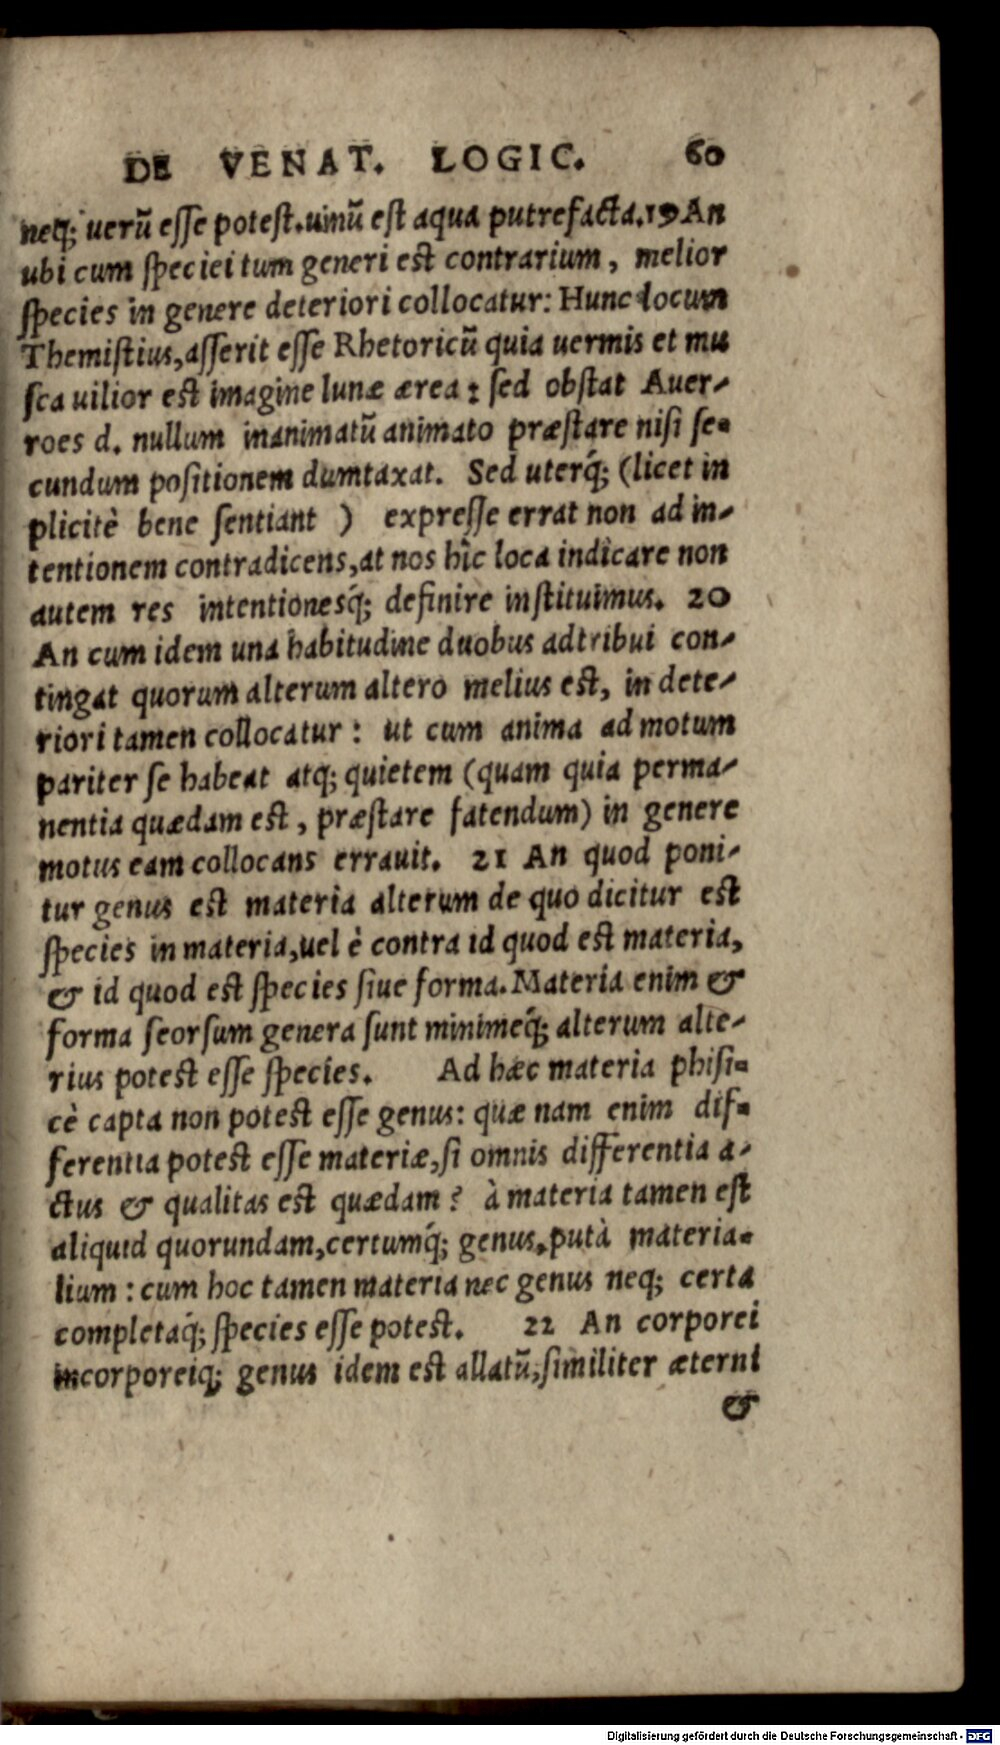 DE VENAT. LOGIC. 60
neq; uerũ esse potest. uinũ est aqua putrefacta. 19 An
ubi cum speciei tum generi est contrarium, melior
species in genere deteriori collocatur: Hunc locum
Themistius, asserit esse Rhetoricũ quia uermis et mu
sca uilior est imagine lunæ ærea: sed obstat Auer-
roes d. nullum inanimatũ animato præstare nisi se-
cundum positionem dumtaxat. Sed uterq́; (licet in
plicitè bene sentiant ) expresse errat non ad in-
tentionem contradicens, at nos hîc loca indicare non
autem res intentionesq́; definire instituimus. 20
An cum idem una habitudine duobus adtribui con-
tingat quorum alterum altero melius est, in dete-
riori tamen collocatur: ut cum anima ad motum
pariter se habeat atq; quietem (quam quia perma-
nentia quædam est, præstare fatendum) in genere
motus eam collocans errauit. 21 An quod poni-
tur genus est materia alterum de quo dicitur est
species in materia, uel è contra id quod est materia,
& id quod est species siue forma. Materia enim &
forma seorsum genera sunt minimeq́; alterum alte-
rius potest esse species. Ad hæc materia phisi-
cè capta non potest esse genus: quæ nam enim dif-
ferentia potest esse materiæ, si omnis differentia a-
ctus & qualitas est quædam? à materia tamen est
aliquid quorundam, certumq́; genus, putà materia-
lium: cum hoc tamen materia nec genus neq; certa
completaq́; species esse potest. 22 An corporei
incorporeiq; genus idem est allatũ, similiter æterni
&
Digitalisierung gefördert durch die Deutsche Forschungsgemeinschaft - DFG